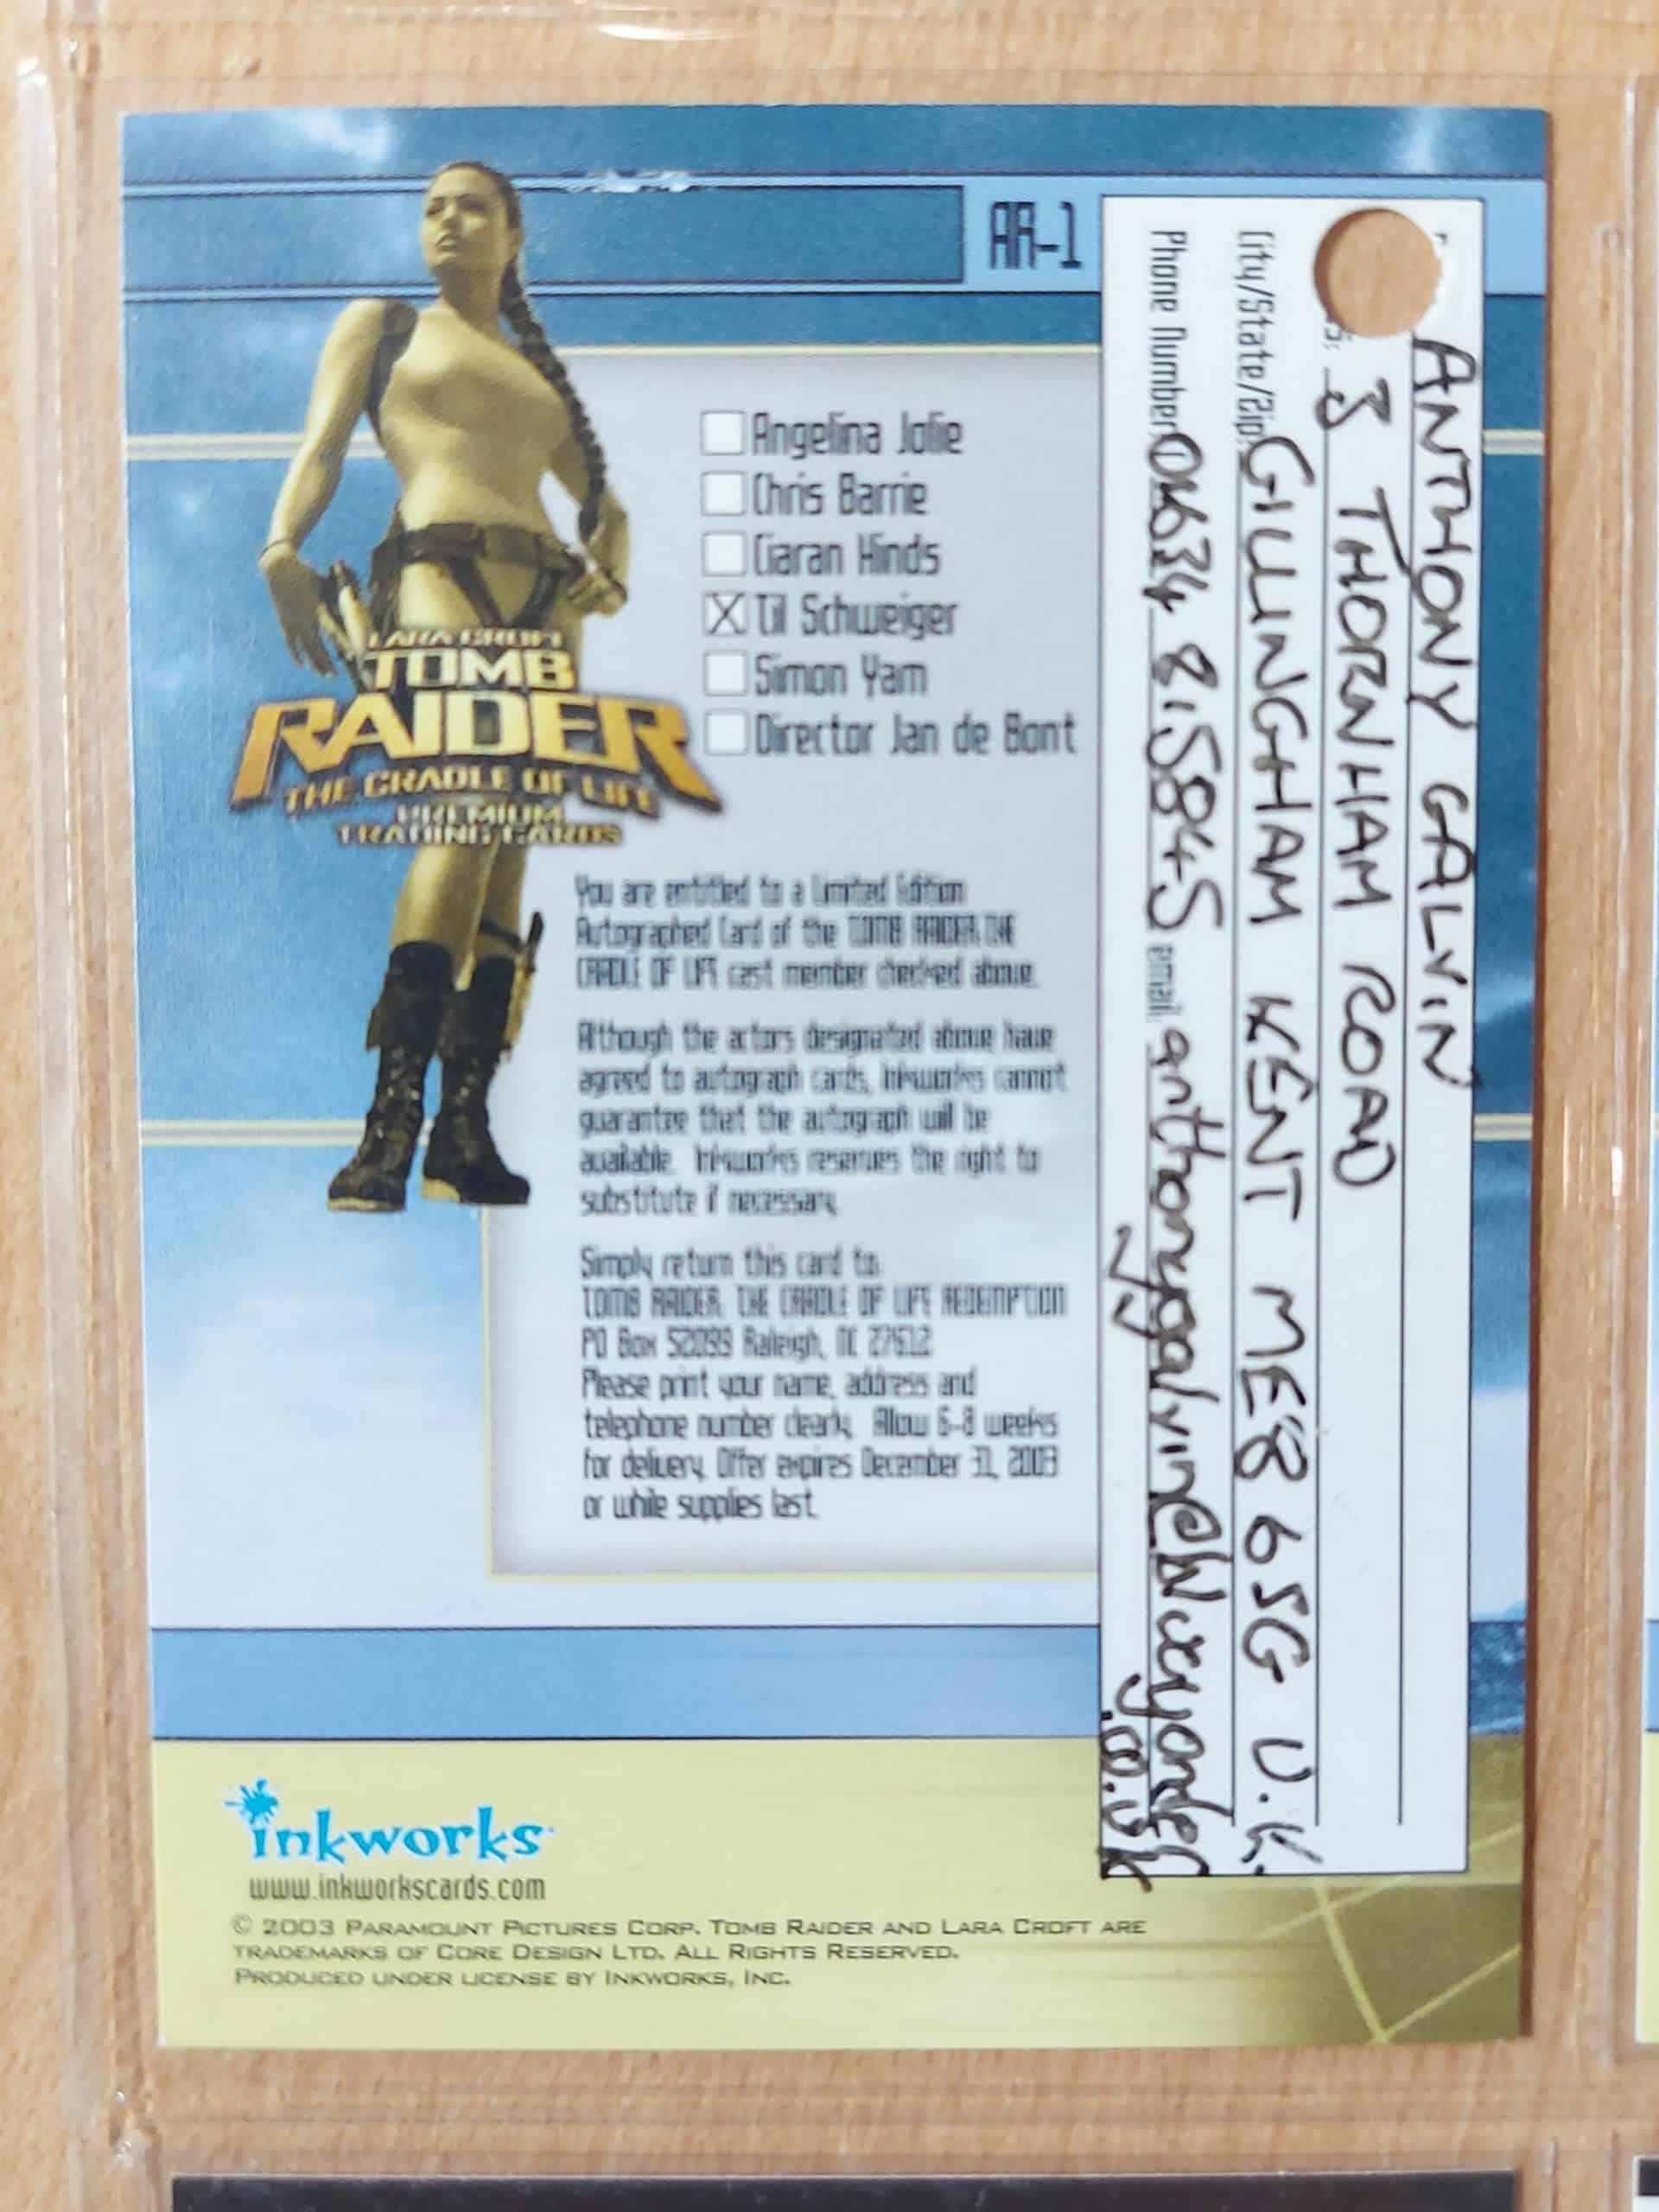 AR-1
Angelina Jolie
Chris Barrie
Ciaran Hinds
X Til Schweiger
Simon Yam
Director Jan de Bont
LARA CROFT
TOMB
RAIDER
THE CRADLE OF LIFE
PREMIUM
TRADING CARDS
You are entitled to a Limited Edition
Autographed Card of the TOMB RAIDER THE
CRADLE OF LIFE cast member checked above.
Although the actors designated above have
agreed to autograph cards, Inkworks cannot
guarantee that the autograph will be
available. Inkworks reserves the right to
substitute if necessary.
Simply return this card to:
TOMB RAIDER, THE CRADLE OF LIFE REDEMPTION
PO Box 52099 Raleigh, NC 27612
Please print your name, address and
telephone number clearly. Allow 6-8 weeks
for delivery. Offer expires December 31, 2003
or while supplies last.
ANTHONY GALVIN
THORNHAM ROAD
City/State/Zip: GILLINGHAM KENT ME8 6SG U.K.
Phone Number 01634 815845 email
.co.uk
inkworks
www.inkworkscards.com
© 2003 PARAMOUNT PICTURES CORP. TOMB RAIDER AND LARA CROFT ARE
TRADEMARKS OF CORE DESIGN LTD. ALL RIGHTS RESERVED.
PRODUCED UNDER LICENSE BY INKWORKS, INC.